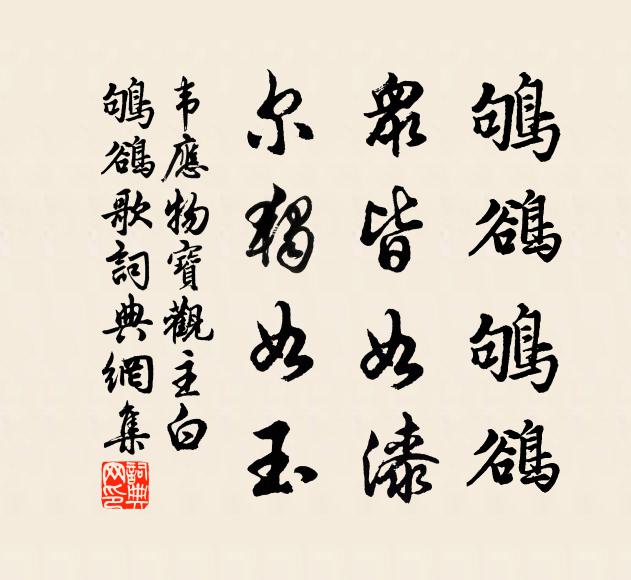 鴝鵒鴝鵒
眾皆如漆
尔獨如玉
韦應物寶觀主白
鴝鵒歌詞典網集
詞典网印